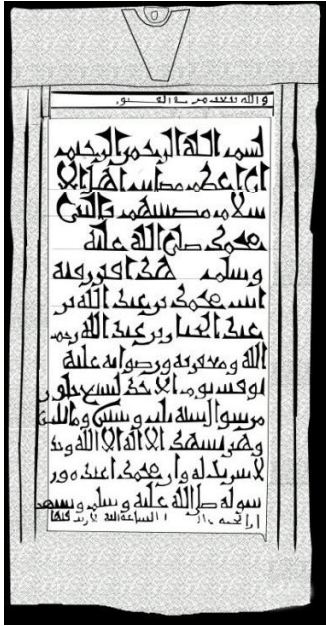 والله يبعث من في القبور
بسم الله الرحمن الرحيم
ان اعظم مصايب اهل الا
سلام مصيبتهم بالنبي
محمد صلى الله عليه
وسلم هذا قبر رقية
محمد بن عبد الله بن
عبد الجبار بن عبد الله رحمت
الله ومغفرته ورضوانه عليه
توفيت يوم الاحد لسبع خلون
من شوال سنة ومائتين
وهي تشهد الا اله الا الله وحد
لا شريك له وان محمدا عبده ور
سوله صلى الله عليه وسلم وتشهد
ان الجنة الساعة اتية لا ريب فيها